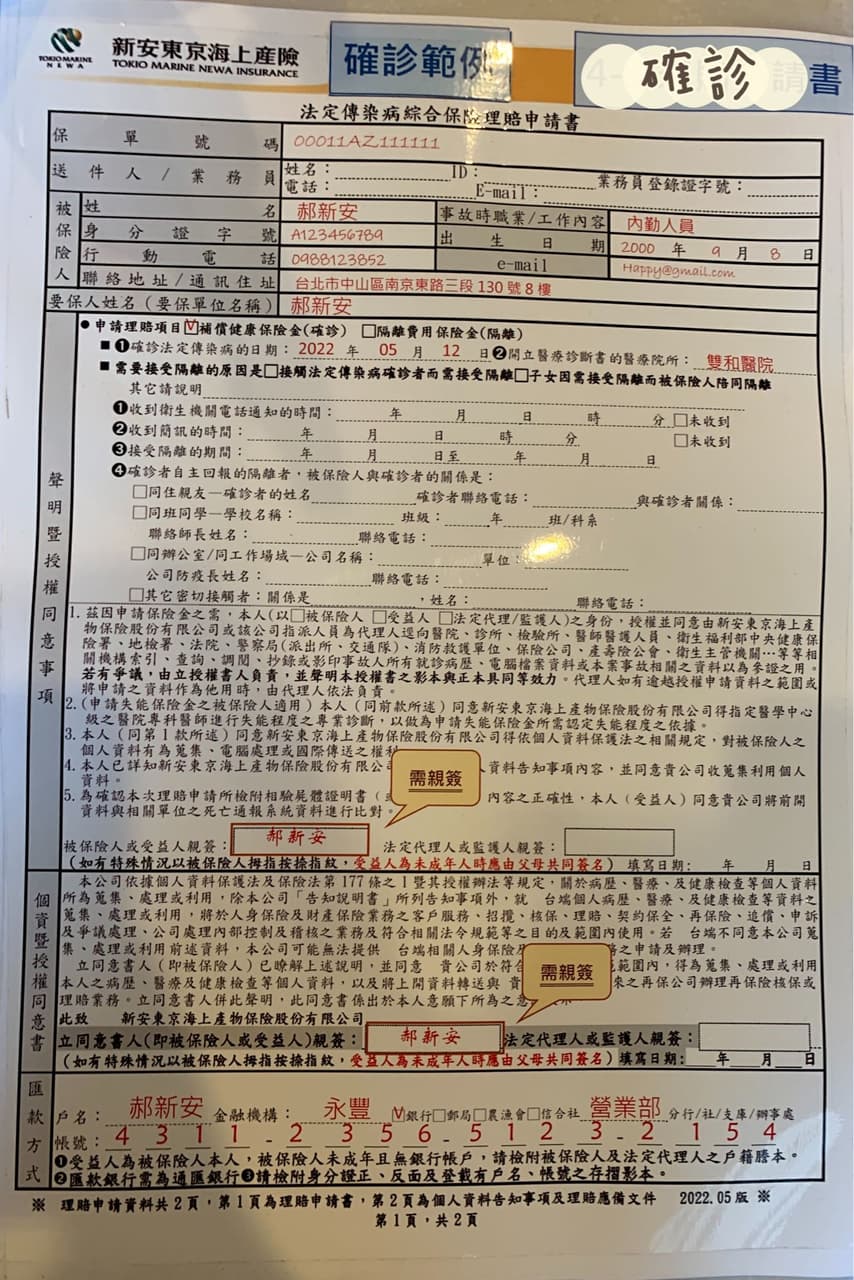 TOKIO MARINE
NEWA
新安東京海上產險
TOKIO MARINE NEWA INSURANCE
確診範例
確診 請書
法定傳染病綜合保險理賠申請書
保單號碼 00011AZ111111
送件人/業務員 姓名： ID： 業務員登錄證字號：
電話： E-mail：
被保險人
姓名 郝新安 事故時職業/工作內容 內勤人員
身分證字號 A123456789 出生日期 2000 年 9 月 8 日
行動電話 0988123852 e-mail Happy@gmail.com
聯絡地址/通訊住址 台北市中山區南京東路三段130號8樓
要保人姓名(要保單位名稱) 郝新安
聲明暨授權同意事項
●申請理賠項目☑補償健康保險金(確診) □隔離費用保險金(隔離)
■❶確診法定傳染病的日期：2022 年 05 月 12 日❷開立醫療診斷書的醫療院所：雙和醫院
■需要接受隔離的原因是□接觸法定傳染病確診者而需接受隔離□子女因需接受隔離而被保險人陪同隔離
其它請說明
❶收到衛生機關電話通知的時間： 年 月 日 時 分 □未收到
❷收到簡訊的時間： 年 月 日 時 分 □未收到
❸接受隔離的期間： 年 月 日至 年 月 日
❹確診者自主回報的隔離者，被保險人與確診者的關係是：
□同住親友—確診者的姓名 確診者聯絡電話： 與確診者關係：
□同班同學—學校名稱： 班級： 年 班/科系
聯絡師長姓名： 聯絡電話：
□同辦公室/同工作場域—公司名稱： 單位：
公司防疫長姓名： 聯絡電話：
□其它密切接觸者：關係是 ，姓名： 聯絡電話：
1. 茲因申請保險金之需，本人(以□被保險人 □受益人 □法定代理/監護人)之身份，授權並同意由新安東京海上產
物保險股份有限公司或該公司指派人員為代理人逕向醫院、診所、檢驗所、醫師醫護人員、衛生福利部中央健康保
險署、地檢署、法院、警察局(派出所、交通隊)、消防救護單位、保險公司、產壽險公會、衛生主管機關…等等相
關機構索引、查詢、調閱、抄錄或影印事故人所有就診病歷、電腦檔案資料或本案事故相關之資料以為參證之用。
若有爭議，由立授權書人負責，並聲明本授權書之影本與正本具同等效力。代理人如有逾越授權申請資料之範圍或
將申請之資料作為他用時，由代理人依法負責。
2. (申請失能保險金之被保險人適用) 本人 (同前款所述) 同意新安東京海上產物保險股份有限公司得指定醫學中心
級之醫院專科醫師進行失能程度之專業診斷，以做為申請失能保險金所需認定失能程度之依據。
3. 本人 (同第1款所述) 同意新安東京海上產物保險股份有限公司得依個人資料保護法之相關規定，對被保險人之
個人資料有為蒐集、電腦處理或國際傳送之權利
4. 本人已詳知新安東京海上產物保險股份有限公 人資料告知事項內容，並同意貴公司收蒐集利用個人
資料。
需親簽
5. 為確認本次理賠申請所檢附相驗屍體證明書 ( 內容之正確性，本人 (受益人) 同意貴公司將前開
資料與相關單位之死亡通報系統資料進行比對。
被保險人或受益人親簽： 郝新安 法定代理人或監護人親簽：
(如有特殊情況以被保險人拇指按捺指紋，受益人為未成年人時應由父母共同簽名) 填寫日期： 年 月 日
個資暨授權同意書
本公司依據個人資料保護法及保險法第177條之1暨其授權辦法等規定，關於病歷、醫療、及健康檢查等個人資料
所為蒐集、處理或利用，除本公司「告知說明書」所列告知事項外，就 台端個人病歷、醫療、及健康檢查等資料之
蒐集、處理或利用，將於人身保險及財產保險業務之客戶服務、招攬、核保、理賠、契約保全、再保險、追償、申訴
及爭議處理、公司處理內部控制及稽核之業務及符合相關法令規範等之目的及範圍內使用。若 台端不同意本公司蒐
集、處理或利用前述資料，本公司可能無法提供 台端相關人身保險及 務之申請及辦理。
需親簽
立同意書人(即被保險人)已瞭解上述說明，並同意 貴公司於符合 範圍內，得為蒐集、處理或利用
本人之病歷、醫療及健康檢查等個人資料，以及將上開資料轉送與 貴 來之再保公司辦理再保險核保或
理賠業務。立同意書人併此聲明，此同意書係出於本人意願下所為之意
此致 新安東京海上產物保險股份有限公司
立同意書人(即被保險人或受益人)親簽： 郝新安 法定代理人或監護人親簽：
(如有特殊情況以被保險人拇指按捺指紋，受益人為未成年人時應由父母共同簽名) 填寫日期： 年 月 日
匯款方式
戶名： 郝新安 金融機構： 永豐 ☑銀行□郵局□農漁會□信合社 營業部 分行/社/支庫/辦事處
帳號： 4 3 1 1 - 2 3 5 6 - 5 1 2 3 - 2 1 5 4
❶受益人為被保險人本人，被保險人未成年且無銀行帳戶，請檢附被保險人及法定代理人之戶籍謄本。
❷匯款銀行需為通匯銀行❸請檢附身分證正、反面及登載有戶名、帳號之存摺影本。
※ 理賠申請資料共2頁，第1頁為理賠申請書，第2頁為個人資料告知事項及理賠應備文件 2022.05版 ※
第1頁，共2頁